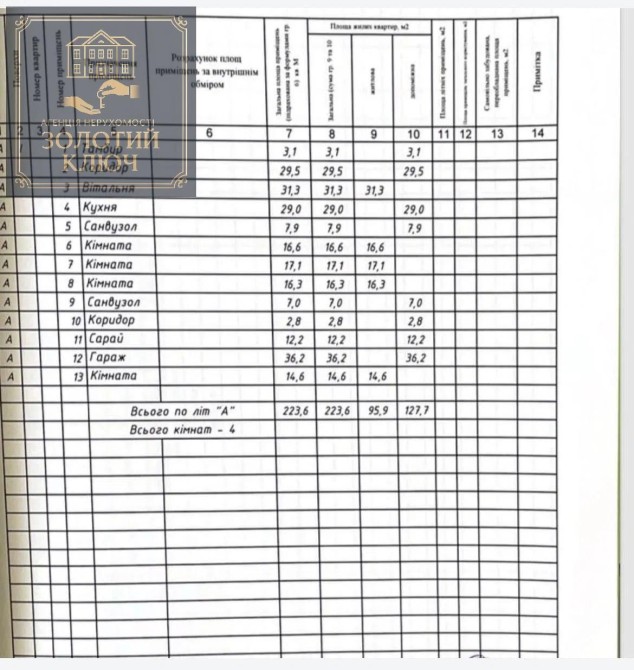 Поверхи
Номер квартир
Номер приміщень
Розрахунок площ приміщень за внутрішнім обміром
Загальна площа приміщень (підрахована за формулами гр 6) кв М
Площа жилих квартир, м2
Загальна (сума гр. 9 та 10
житлова
допоміжна
Площа літніх приміщень, м2
Самовільно забудована, переобладнана площа приміщень, м2
Примітка
АГЕНЦІЯ НЕРУХОМОСТІ
ЗОЛОТИЙ
КЛЮЧ
2 3 5 6 7 8 9 10 11 12 13 14
А 1 1 Тамбур 3,1 3,1 3,1
А 2 Коридор 29,5 29,5 29,5
А 3 Вітальня 31,3 31,3 31,3
А 4 Кухня 29,0 29,0 29,0
А 5 Санвузол 7,9 7,9 7,9
А 6 Кімната 16,6 16,6 16,6
А 7 Кімната 17,1 17,1 17,1
А 8 Кімната 16,3 16,3 16,3
А 9 Санвузол 7,0 7,0 7,0
А 10 Коридор 2,8 2,8 2,8
А 11 Сарай 12,2 12,2 12,2
А 12 Гараж 36,2 36,2 36,2
А 13 Кімната 14,6 14,6 14,6
Всього по літ "А" 223,6 223,6 95,9 127,7
Всього кімнат - 4